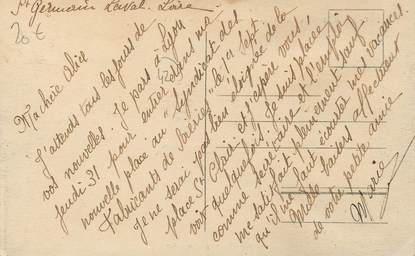 St Germain Laval. Loire
20 €
Ma chère Alice
J'attends tous les jours de
vos nouvelles. Je pars à Lyon
jeudi 31 pour entrer dans ma
nouvelle place au "Syndicat des
Fabricants de" le 1er Sept.
Je ne serai pas bien éloignée de la
place et j'espère vous
voir quelquefois. Je suis placée
comme secrétaire et l'emploi
me satisfait pleinement sauf
qu'il me fait écourter mes vacances.
Mille baisers affectueux
de votre petite amie
Marie